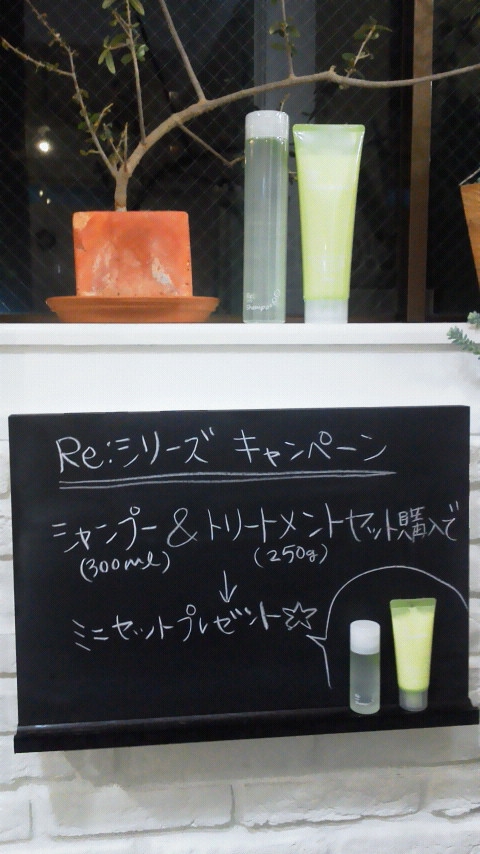 Re:
Shampoo
Re:シリーズ キャンペーン
シャンプー & トリートメントセット購入で
(300ml) (250g)
↓
ミニセットプレゼント☆